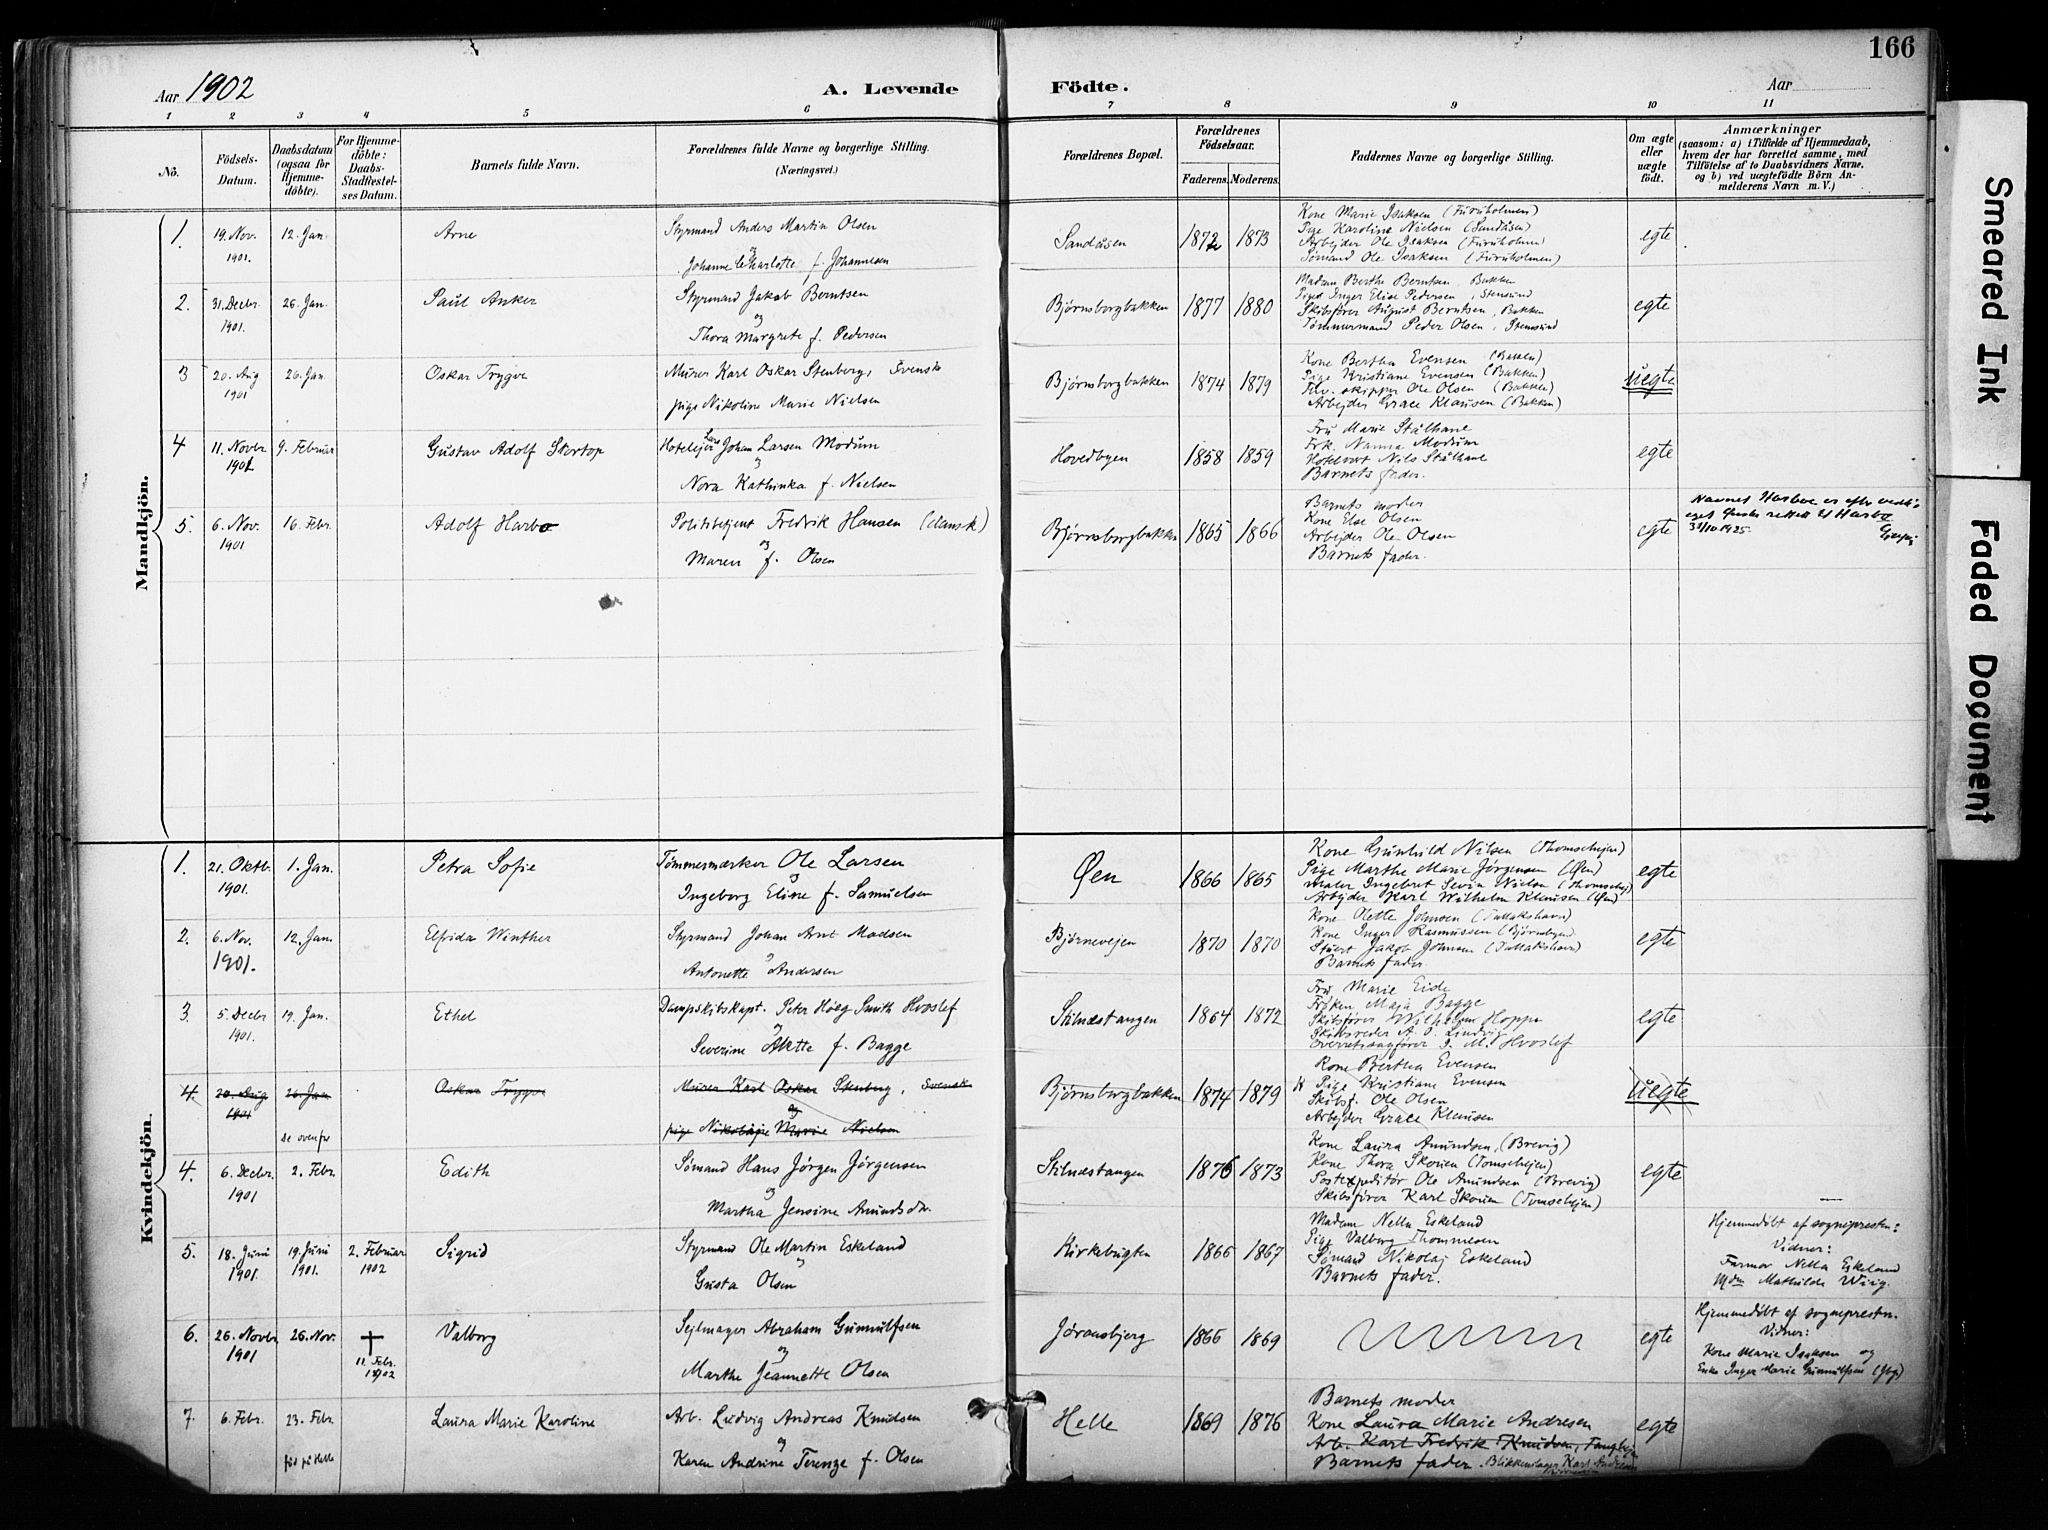 166
Aar 1902
A. Levende Födte.
Aar
1 2 3 4 5 6 7 8 9 10 11
No.
Födsels-Datum.
Daabsdatum (ogsaa for Hjemmedöbte).
For Hjemmedöbte: Daabs-Stadfæstelses Datum.
Barnets fulde Navn.
Forældrenes fulde Navne og borgerlige Stilling.
(Næringsvei.)
Forældrenes Bopæl.
Forældrenes Födselsaar.
Faderens. Moderens.
Faddernes Navne og borgerlige Stilling.
Om ægte eller uægte födt.
Anmærkninger
(saasom: a) i Tilfælde af Hjemmedaab,
hvem der har forrettet samme, med
Tilföielse af to Daabsvidners Navne,
og b) ved uægtefödte Börn An-
melderens Navn m. V.)
Mandkjön.
1. 19. Nov. 1901. 12. Jan. Arne
Styrmand Anders Martin Olsen
og
Johanne Charlotte f. Johannesen
Sandåsen 1872 1873
Kone Marie Isaksen (Furuholmen)
Pige Karoline Nielsen (Sandåsen)
Arbejder Ole Isaksen (Furuholmen)
Sømand Ole Isaksen (Furuholmen)
egte
2. 31. Decbr. 1901. 26. Jan. Paul Anker
Styrmand Jakob Berntsen
og
Thora Margrete f. Pedersen
Bjørnsborgbakken 1877 1880
Madam Berthe Berntsen, Bakken
Pige Inger Elise Pedersen, Stensund
Skibsfører August Berntsen, Bakken
Tømmermand Peder Olsen, Stensund
egte
3 20. Aug 1901 26. Jan. Oskar Trygve
Murer Karl Oskar Stenberg, Svensk
pige Nikoline Marie Nielsen
Bjørnsborgbakken 1874 1879
Kone Bertha Evensen (Bakken)
Pige Kristiane Evensen (Bakken)
skipper Ole Olsen (Bakken)
Arbejder Grace Klausen (Bakken)
uegte
4 11. Novbr. 1901 9. Februar Gustav Adolf Skortop
Hotelejer Lars Johan Larsen Modum
og
Nora Kathinka f. Nielsen
Hovedbyen 1858 1859
Fru Marie Stålhane
Frk. Nanna Modum
Hotelvert Nils Stålhane
Barnets fader.
egte
5. 6. Nov. 1901 16. Febr. Adolf Harbo
Politibetjent Fredrik Hansen (dansk)
og
Maren f. Olsen
Bjørnsborgbakken 1865 1866
Barnets moder
Kone Else Olsen
Arbejder Ole Olsen
Barnets fader.
egte
Navnet Harboe er efter
rettet til Harbo
31/10 1925.
Kvindekjön.
1. 21. Oktb. 1901. 1. Jan. Petra Sofie
Tømmermærker Ole Larsen
og
Ingeborg Eline f. Samuelsen
Øen 1866 1865
Kone Gunhild Nilsen (Thomschejen)
Pige Marthe Marie Jørgensen (Øen)
Maler Ingebret Sevin Nielsen (Thomschej)
Arbejder Karl Wilhelm Klausen (Øen)
egte
2. 6. Nov. 1901. 12. Jan. Elfrida Winther
Styrmand Johan Arnt Madsen
og
Antonette Andersen
Bjørnevejen 1870 1870
Kone Olette Johnsen
Kone Inger Rasmussen
Stuert Jakob Johnsen
Barnets fader
egte
3. 5. Decbr 1901. 19. Jan. Ethel
Dampskibskapt. Peter Høeg Smith Hvoslef
og
Severine Aktte f. Bagge
Stilnæstangen 1864 1872
Fru Marie Eide
Frøken Maja Bagge
Skibsfører Wilhelm Hoppe
Skibsreder A. O. Lindvig
Overretssagfører J. M. Hvoslef
egte
4 20. Aug 1901 26. Jan. Oskar Trygve
Se ovenfor
Murer Karl Oskar Stenberg, Svensk
og
pige Nikoline Marie Nielsen
Bjørnsborgbakken 1874 1879
Kone Bertha Evensen
Pige Kristiane Evensen
Skibsf. Ole Olsen
Arbejder Grace Klausen
uegte
4. 6. Decbr. 1901 2. Febr. Edith
Sømand Hans Jørgen Jørgensen
og
Martha Jensine Amundsdr.
Stilnæstangen 1876 1873
Kone Laura Amundsen, (Brevig)
Kone Thora Skouen (Tomschejen)
Postexpeditør Ole Amundsen (Brevig)
Skibsfører Karl Skouen (Tomschejen)
egte
5. 18. Juni 1901. 19. Juni 1901. 2. Februar 1902 Sigrid
Styrmand Ole Martin Eskeland
og
Gusta Olsen
Kirkebugten 1866 1867
Madam Nella Eskeland
Pige Valborg Thommesen
Sømand Nikolaj Eskeland
Barnets fader.
egte
Hjemmedøbt af sognepresten:
Vidner:
Farmor Nella Eskeland
Mdm Mathilde Wiig.
6. 26. Novbr 1901 26. Nov. 11. Febr. 1902 Valborg
Sejlmager Abraham Gunnulfsen
og
Marthe Jeannette Olsen
Jøransbjerg 1866 1869
egte
Hjemmedøbt af sognepresten.
Vidner:
Kone Marie Isaksen og
Enke Inger Marie Gunnulfsen (Jbg.)
7. 6. Febr. 23. Febr. Laura Marie Karoline
død på Helle
Arb. Ludvig Andreas Knudsen
og
Karen Andrine Terenze f. Olsen
Helle 1869 1876
Barnets moder
Kone Laura Marie Andresen
Arb. Karl Fredrik Knudsen,
Barnets fader. Blikkenslager Karl Andresen
egte
Smeared Ink
Faded Document